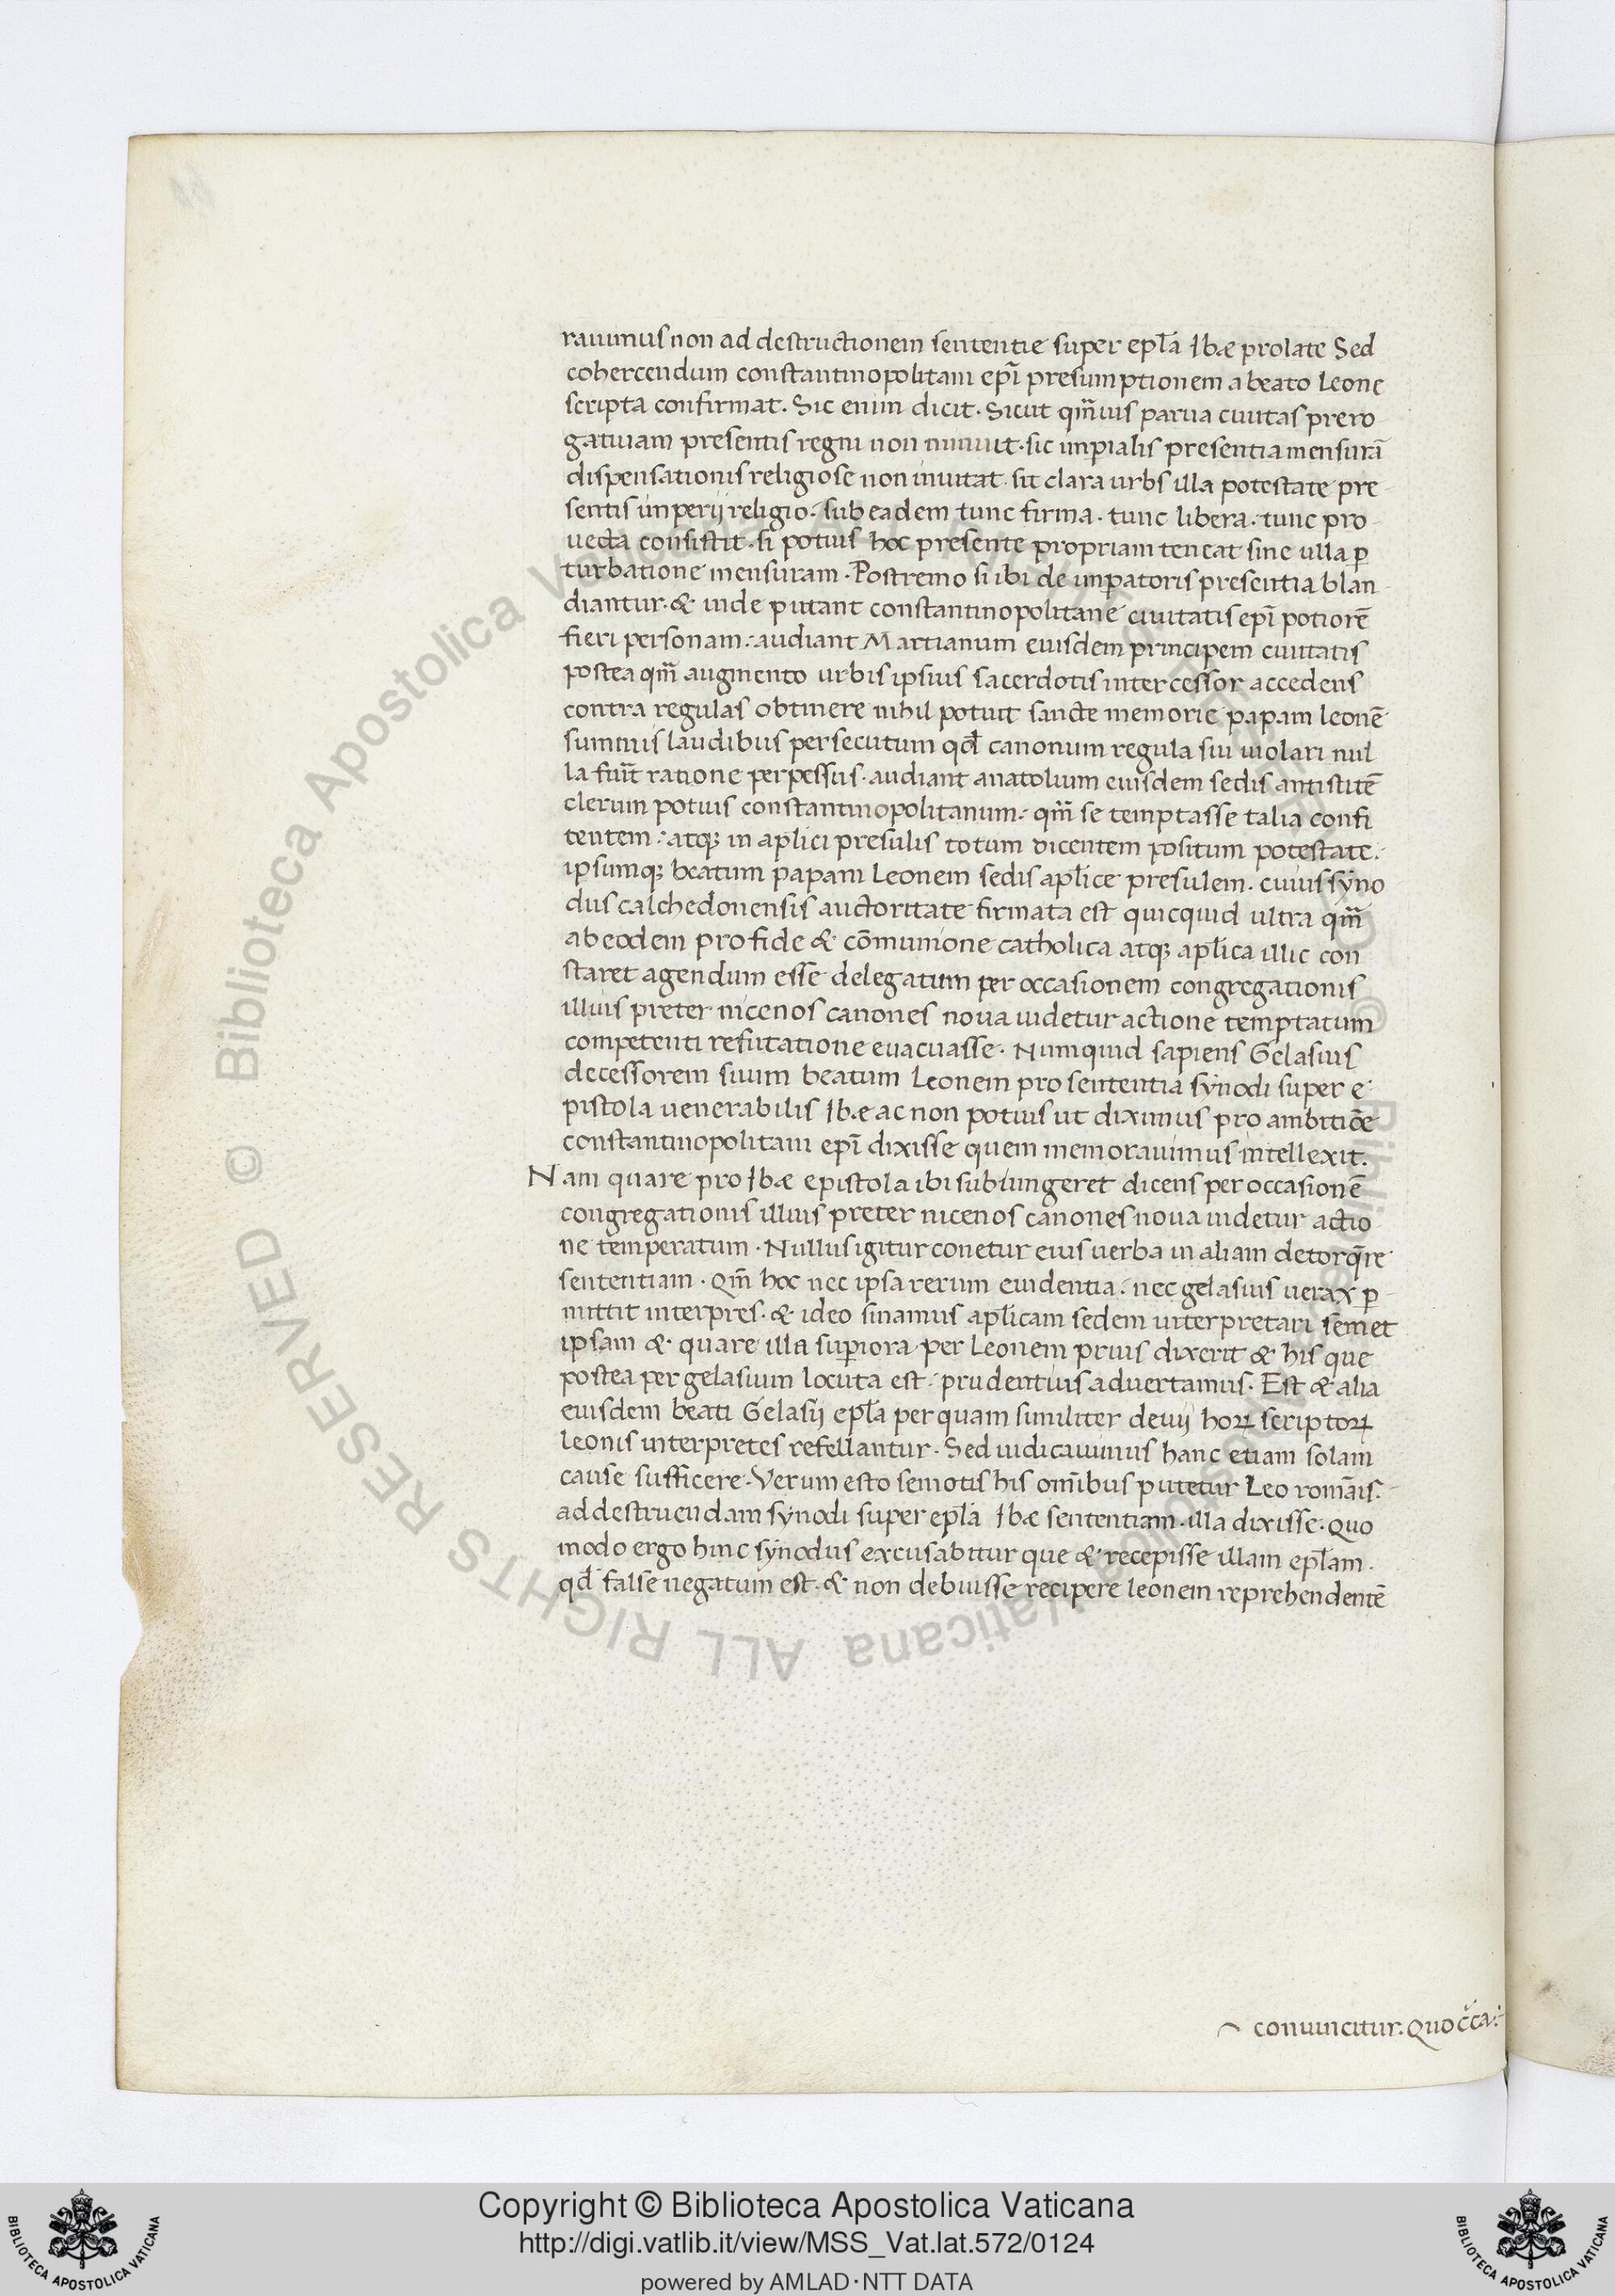 rauimus non ad destructionem sententie super epl̄a Ibæ prolate Sed
cohercendum constantinopolitani epī presumptionem a beato leone
scripta confirmat. Sic enim dicit. Sicut qm̄uis parua ciuitas prero
gatiuam presentis regni non minuit. sic imꝑialis presentia mensurā
dispensationis religiose non mutat. sit clara urbs illa potestate pre
sentis imperij religio. sub eadem tunc firma. tunc libera. tunc pro
uecta consistit. si potius hoc presente propriam teneat sine ulla ꝑ
turbatione mensuram. Postremo si ibi de imꝑatoris presentia blan
diantur. & inde putant constantinopolitane ciuitatis epī potiorē
fieri personam: audiant Martianum eiusdem principem ciuitatis
postea qm̄ augmento urbis ipsius sacerdotis intercessor accedens
contra regulas obtinere nihil potuit sancte memorie papam leonē
summis laudibus persecutum qd̄ canonum regula sui uiolari nul
la fuit̄ ratione perpessus. audiant anatolium eiusdem sedis antistitē
clerum potius constantinopolitanum. qm̄ se temptasse talia confi
tentem: atqꝫ in apl̄ici presulis totum dicentem positum potestate.
ipsumqꝫ beatum papam Leonem sedis apl̄ice presulem. cuius syno
dus calchedonensis auctoritate firmata est quicquid ultra qm̄
ab eodem pro fide & cōmunione catholica atqꝫ apl̄ica illic con
staret agendum esse delegatum per occasionem congregationis
illius preter nicenos canones noua uidetur actione temptatum
competenti refutatione euacuasse. Numquid sapiens Gelasius
decessorem suum beatum Leonem pro sententia synodi super e
pistola uenerabilis Ibæ ac non potius ut diximus pro ambitiōe
constantinopolitani epī dixisse quem memorauimus intellexit.
Nam quare pro Ibæ epistola ibi subiungeret dicens per occasionē
congregationis illius preter nicenos canones noua uidetur actio
ne temperatum. Nullus igitur conetur eius uerba in aliam detorq̄re
sententiam. Qm̄ hoc nec ipsa rerum euidentia. nec gelasius uerax ꝑ
mittit interpres. & ideo sinamus apl̄icam sedem interpretari semet
ipsam & quare illa suꝑiora per Leonem prius dixerit & his que
postea per gelasium locuta est. prudentius aduertamus. Est & alia
eiusdem beati Gelasij epl̄a per quam similiter deuij hoꝝ scriptoꝝ
leonis interpretes refellantur. Sed iudicauimus hanc etiam solam
cause sufficere. Verum esto semotis his om̄ibus putetur Leo romāis.
ad destruendam synodi super epl̄a Ibæ sententiam. illa dixisse. Quo
modo ergo hinc synodus excusabitur que & recepisse illam epl̄am.
qd̄ false negatum est. & non debuisse recipere leonem reprehendentē
conuincitur. Quoc̄ca:
© Biblioteca Apostolica Vaticana ALL RIGHTS RESERVED
Copyright © Biblioteca Apostolica Vaticana
http://digi.vatlib.it/view/MSS_Vat.lat.572/0124
powered by AMLAD·NTT DATA
BIBLIOTECA APOSTOLICA VATICANA
BIBLIOTECA APOSTOLICA VATICANA